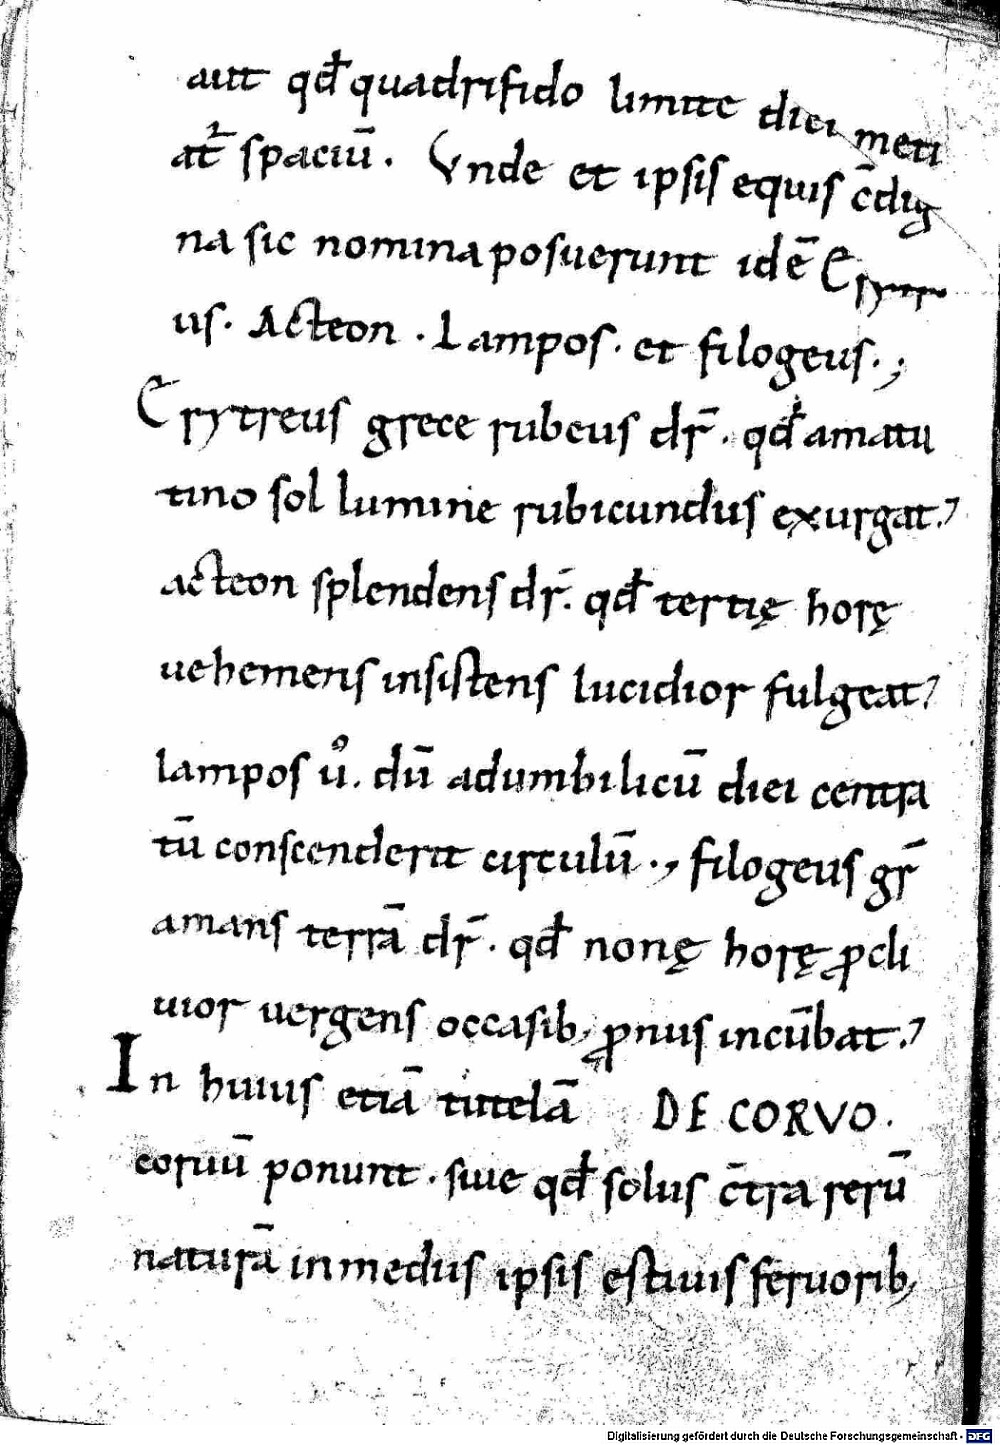 aut qđ quadrifido limite diei meti
at᷑ spaciū. Vnde et ipsis equis c̄dig
na sic nomina posuerunt idē Erytre
us. Acteon. Lampos. et filogeus.;
Erytreus grece rubeus dr̄. qđ amatu
tino sol lumine rubicundus exurgat.
acteon splendens dr̄. qđ tertię horę
uehemens insistens lucidior fulgeat
lampos ů. dū adumbilicū diei centra
tū conscenderit circulū., filogeus gr̄
amans terrā dr̄. qđ nonę horę ꝓcli
uior uergens occasib; ꝓnus incūbat.
In huius etiā tutelā DE CORVO.
coruū ponunt. siue qđ solus c̄tra rerū
naturā inmedus ipsis estiuis feruorib;
Digitalisierung gefördert durch die Deutsche Forschungsgemeinschaft - DFG